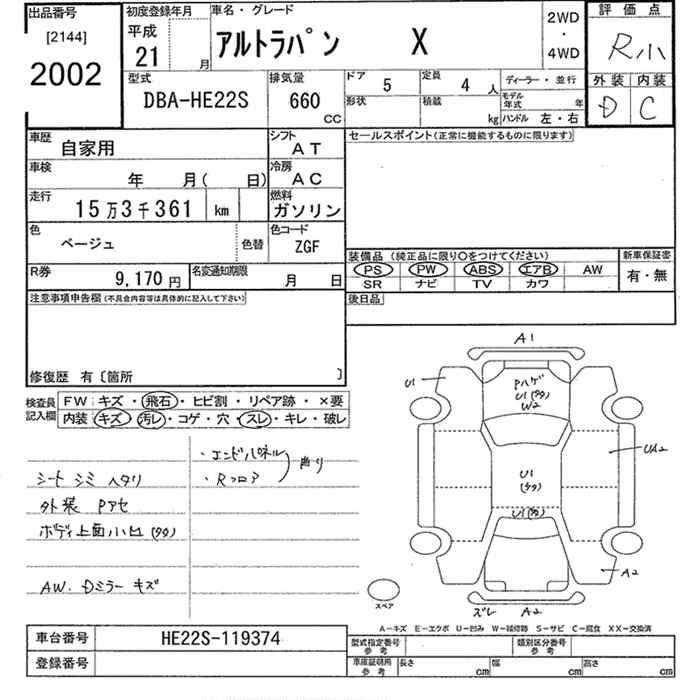 出品番号
[2144]
2002
初度登録年月
平成
21 月
車名・グレード
アルトラパン X
2WD
・
4WD
評価点
R小
外装 内装
D C
型式
DBA-HE22S
排気量
660
CC
ドア 5
定員 4 人
ディーラー・並行
形状
積載 kg
モデル年式 年
ハンドル 左・右
車歴 自家用
シフト AT
車検 年 月( 日)
冷房 AC
走行 15万3千361 km
燃料 ガソリン
色 ベージュ
色替
色コード ZGF
R券 9,170円
名変通知期限 月 日
セールスポイント(正常に機能するものに限ります)
装備品 (純正品に限り○をつけてください)
新車保証書
PS PW ABS エアB AW
有・無
SR ナビ TV カワ
後日品
注意事項申告欄(不具合内容等は具体的に記入して下さい)
修復歴 有〔箇所 〕
検査員
記入欄
FW キズ・飛石・ヒビ割・リペア跡・×要
内装 キズ・汚レ・コゲ・穴・スレ・キレ・破レ
・エンドパネル
・Rフロア
曲り
シート シミ ヘタリ
外装 Pアセ
ボディ上面小凹(多多)
AW.Dミラー キズ
A1
U1
Pハゲ
U1(多多)
W2
UA2
U1
(多多)
U1(多多)
A2
スペア
ズレ A2
A-キズ E-エクボ U-凹み W-補修跡 S-サビ C-腐食 XX-交換済
車台番号 HE22S-119374
登録番号
型式指定番号
参考
類別区分番号
参考
車庫証明用
参考
長さ cm
幅 cm
高さ cm